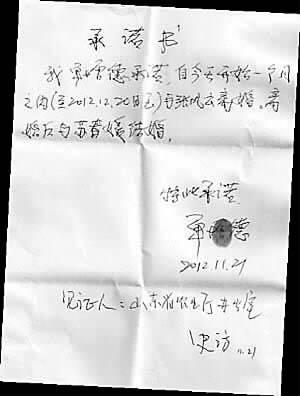 承诺书
我单增德承诺，自今天开始一个月
之内(至2012.12.20日已)与张凤云离婚。离
婚后与苏青媛结婚。
特此承诺
单增德
2012.11.21
见证人：山东省农业厅办公室
史访 11.21